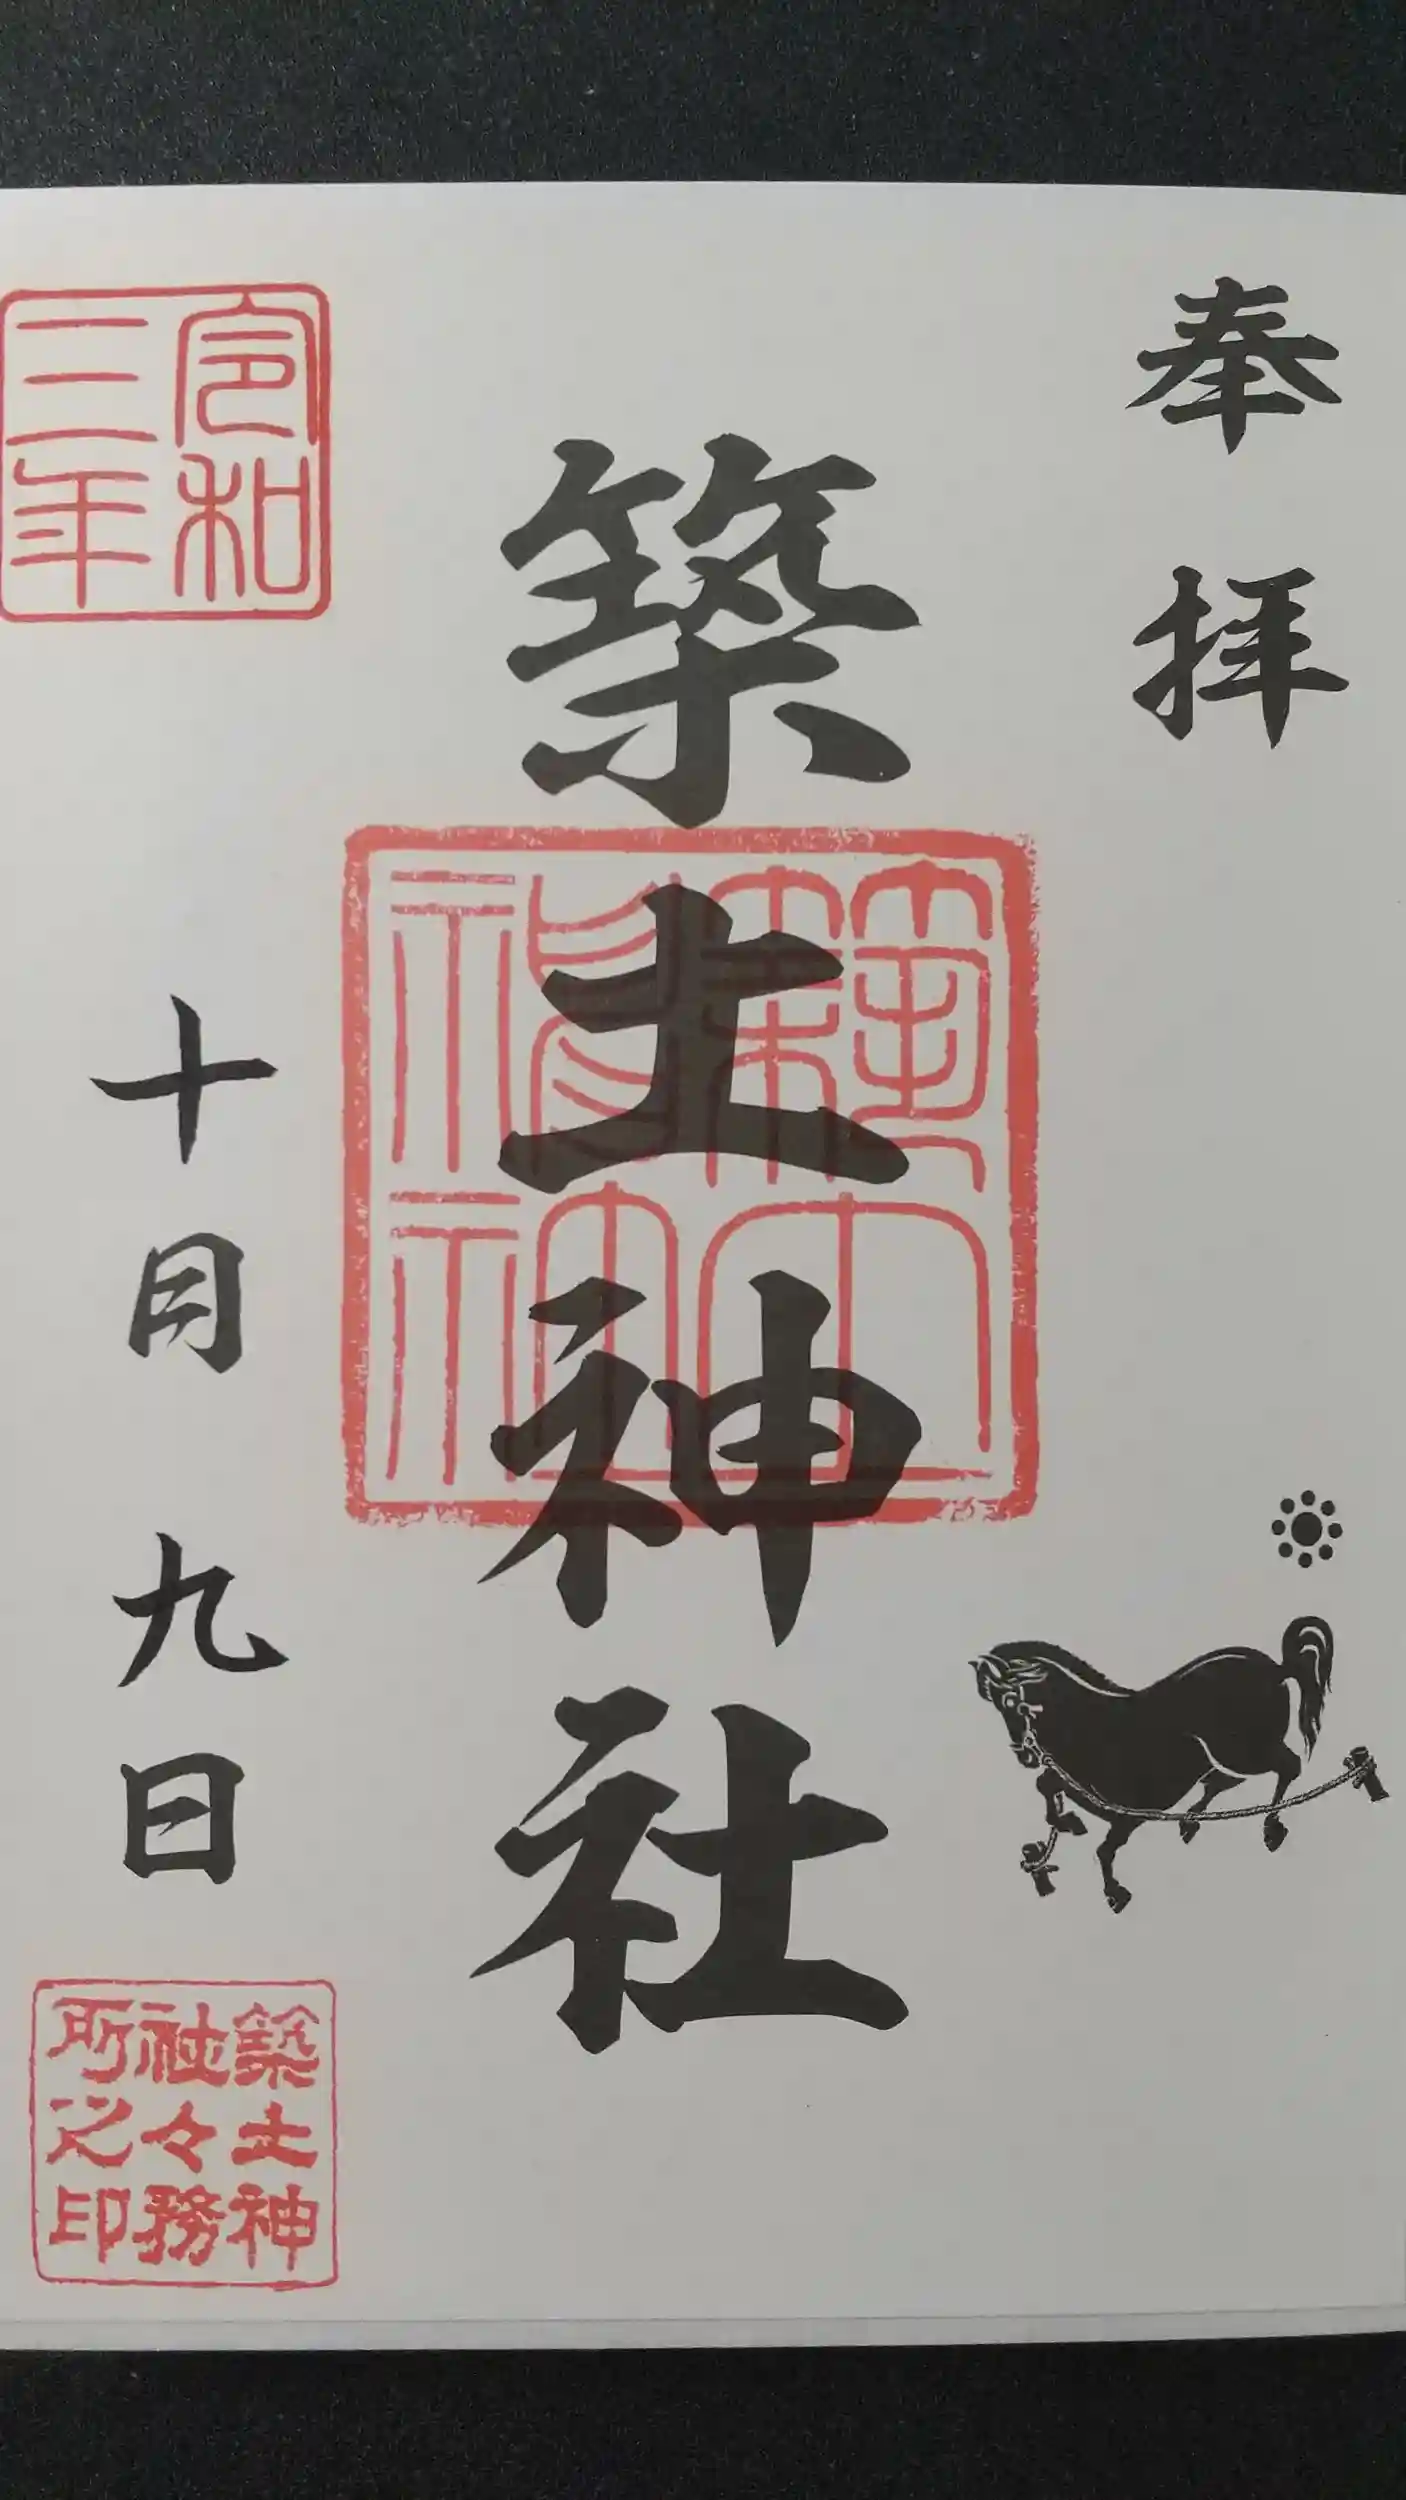 奉拝
築土神社
令和
三年
十月九日
築土神
社々務
所之印